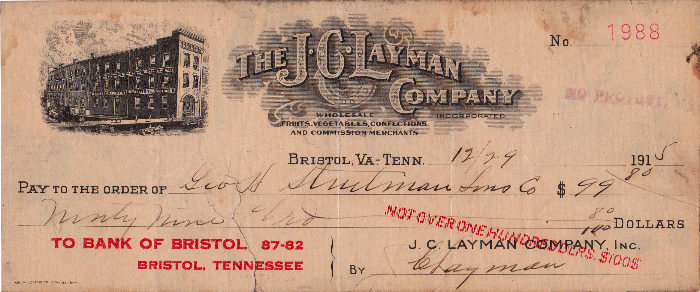 No. 1988
THE J. C. LAYMAN
COMPANY
INCORPORATED
WHOLESALE
FRUITS, VEGETABLES, CONFECTIONS,
AND COMMISSION MERCHANTS
NO PROTEST.
BRISTOL, VA-TENN. 12/29 1915
PAY TO THE ORDER OF Geo H Strietman Sons Co $ 99 80
Ninety Nine 80/100 DOLLARS
NOT OVER ONE HUNDRED DLRS. $100$
TO BANK OF BRISTOL 87-82
BRISTOL, TENNESSEE
J. C. LAYMAN COMPANY, INC.
BY Layman